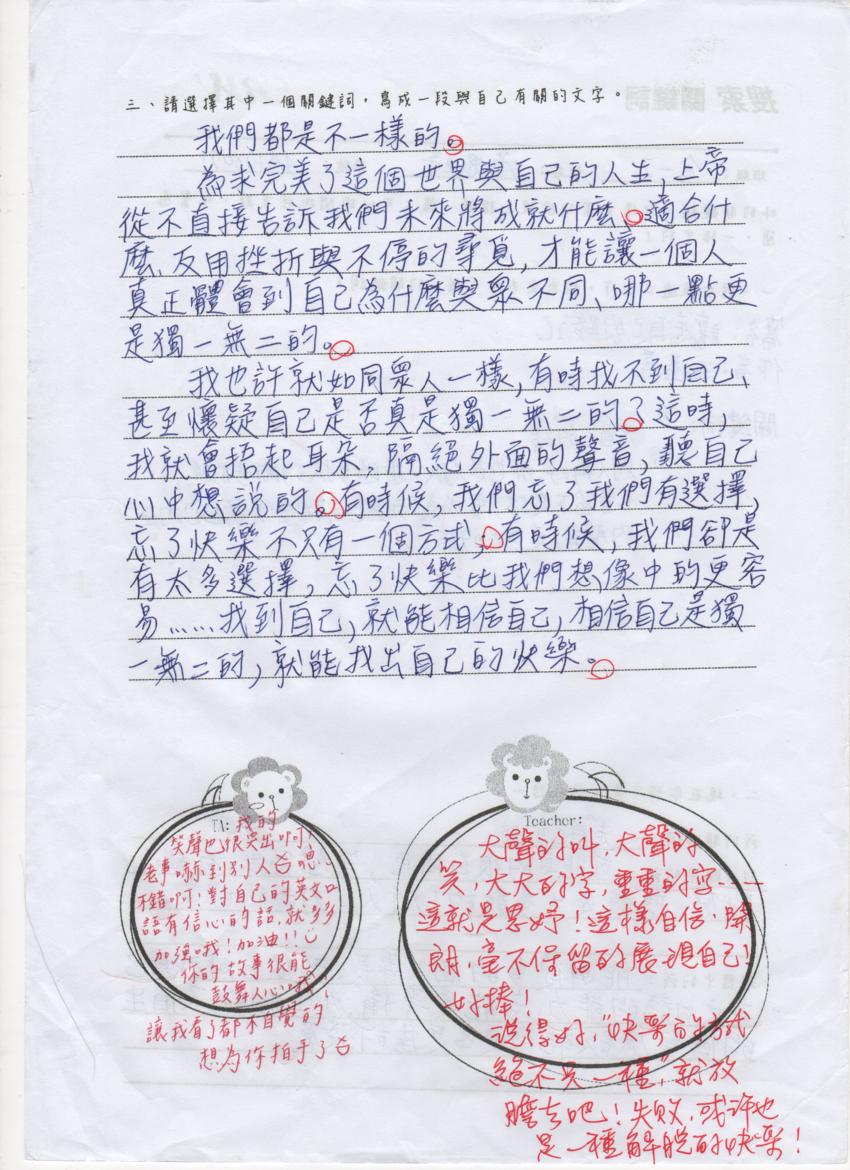 三、請選擇其中一個關鍵詞，寫成一段與自己有關的文字。
我們都是不一樣的。
為求完美了這個世界與自己的人生，上帝
從不直接告訴我們未來將成就什麼、適合什
麼，反用挫折與不停的尋覓，才能讓一個人
真正體會到自己為什麼與眾不同、哪一點更
是獨一無二的。
我也許就如同眾人一樣，有時找不到自己、
甚至懷疑自己是否真是獨一無二的？這時，
我就會捂起耳朵，隔絕外面的聲音，聽自己
心中想說的。有時候，我們忘了我們有選擇，
忘了快樂不只有一個方式；有時候，我們卻是
有太多選擇，忘了快樂比我們想像中的更容
易……找到自己，就能相信自己，相信自己是獨
一無二的，就能找出自己的快樂。
TA: 我的
笑聲也很突出啊！
老事嚇到別人
不錯啊！對自己的英文口
語有信心的話，就多多
加強哦！加油!!
你的故事很能
鼓舞人心哦！
讓我看了都不自覺的
想為你拍手了
Teacher:
大聲的叫，大聲的
笑，大大的字，重重的字----
這就是思妤！這樣自信、開
朗，毫不保留的展現自己！
好棒！
說得好，"快樂的方式
絕不只一種"，就放
膽去吧！失敗，或許也
是一種解脫的快樂！